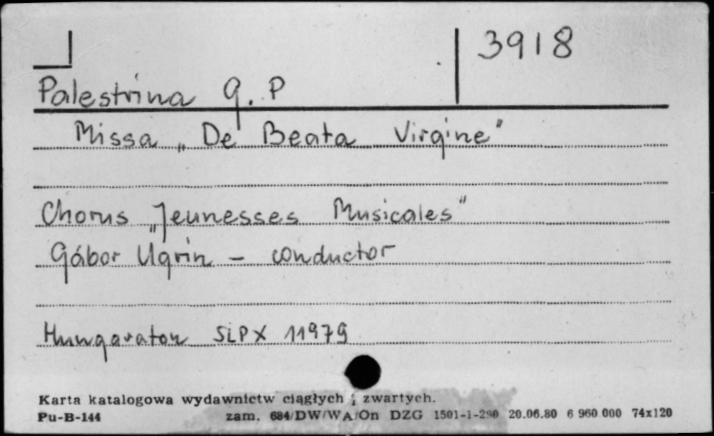 3918
Palestrina G. P
Missa „De Beata Virgine"
Chorus „Jeunesses Musicales"
Gábor Ugrin – conductor
Hungaraton SLPX 11979
Karta katalogowa wydawnictw ciągłych i zwartych.
Pu-B-144 zam. 684/DW/WA/On DZG 1501-1-280 20.06.80 6 960 000 74x120